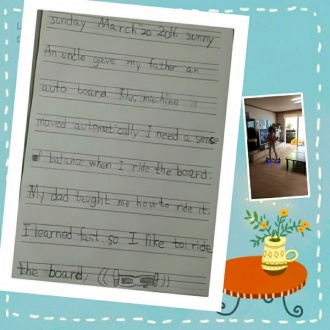 sunday March 20 2016 sunny
An uncle gave my father an
auto board. This machine
moved automatically. I need a sense
of balance when I ride the board.
My dad taught me how to ride it.
I learned fast. so I like to ride
the board.